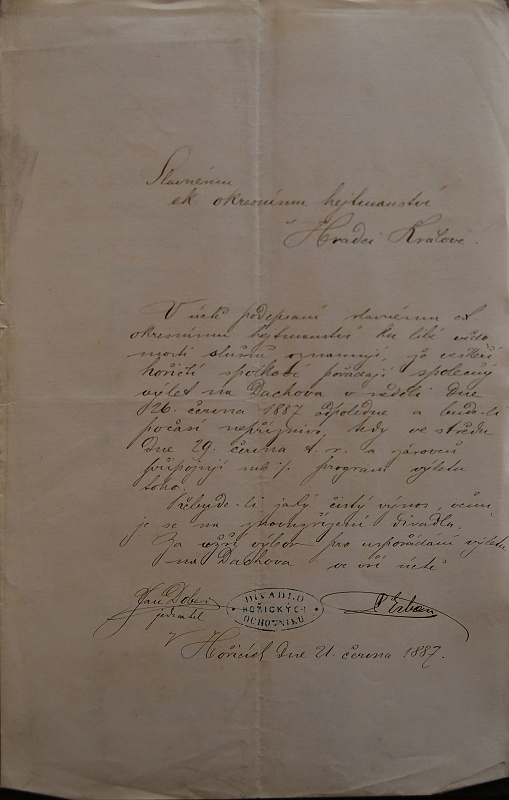 Slavnému
ck okresnímu hejtmanství
v Hradci Králové.
V úctě podepsaní slavnému ck
okresnímu hejtmanství ku libé vědo
mosti slušně oznamují, že veškeré
hořické spolkové pořádají společný
výlet na Dachova v neděli dne
26. června 1887 odpoledne a bude-li
počasí nepříznivo, tedy ve středu
dne 29. června t. r. a zároveň
připojují sub ·/. program výletu
toho.
Zbude-li jaký čistý výnos, věnu
je se na divadla.
Za užší výbor pro uspořádání výletu
na Dachova ve vší úctě
Jan Deber
jednatel
DIVADLO
HOŘICKÝCH
OCHOTNÍKŮ
P Erban
V Hořicích dne 21. června 1887.